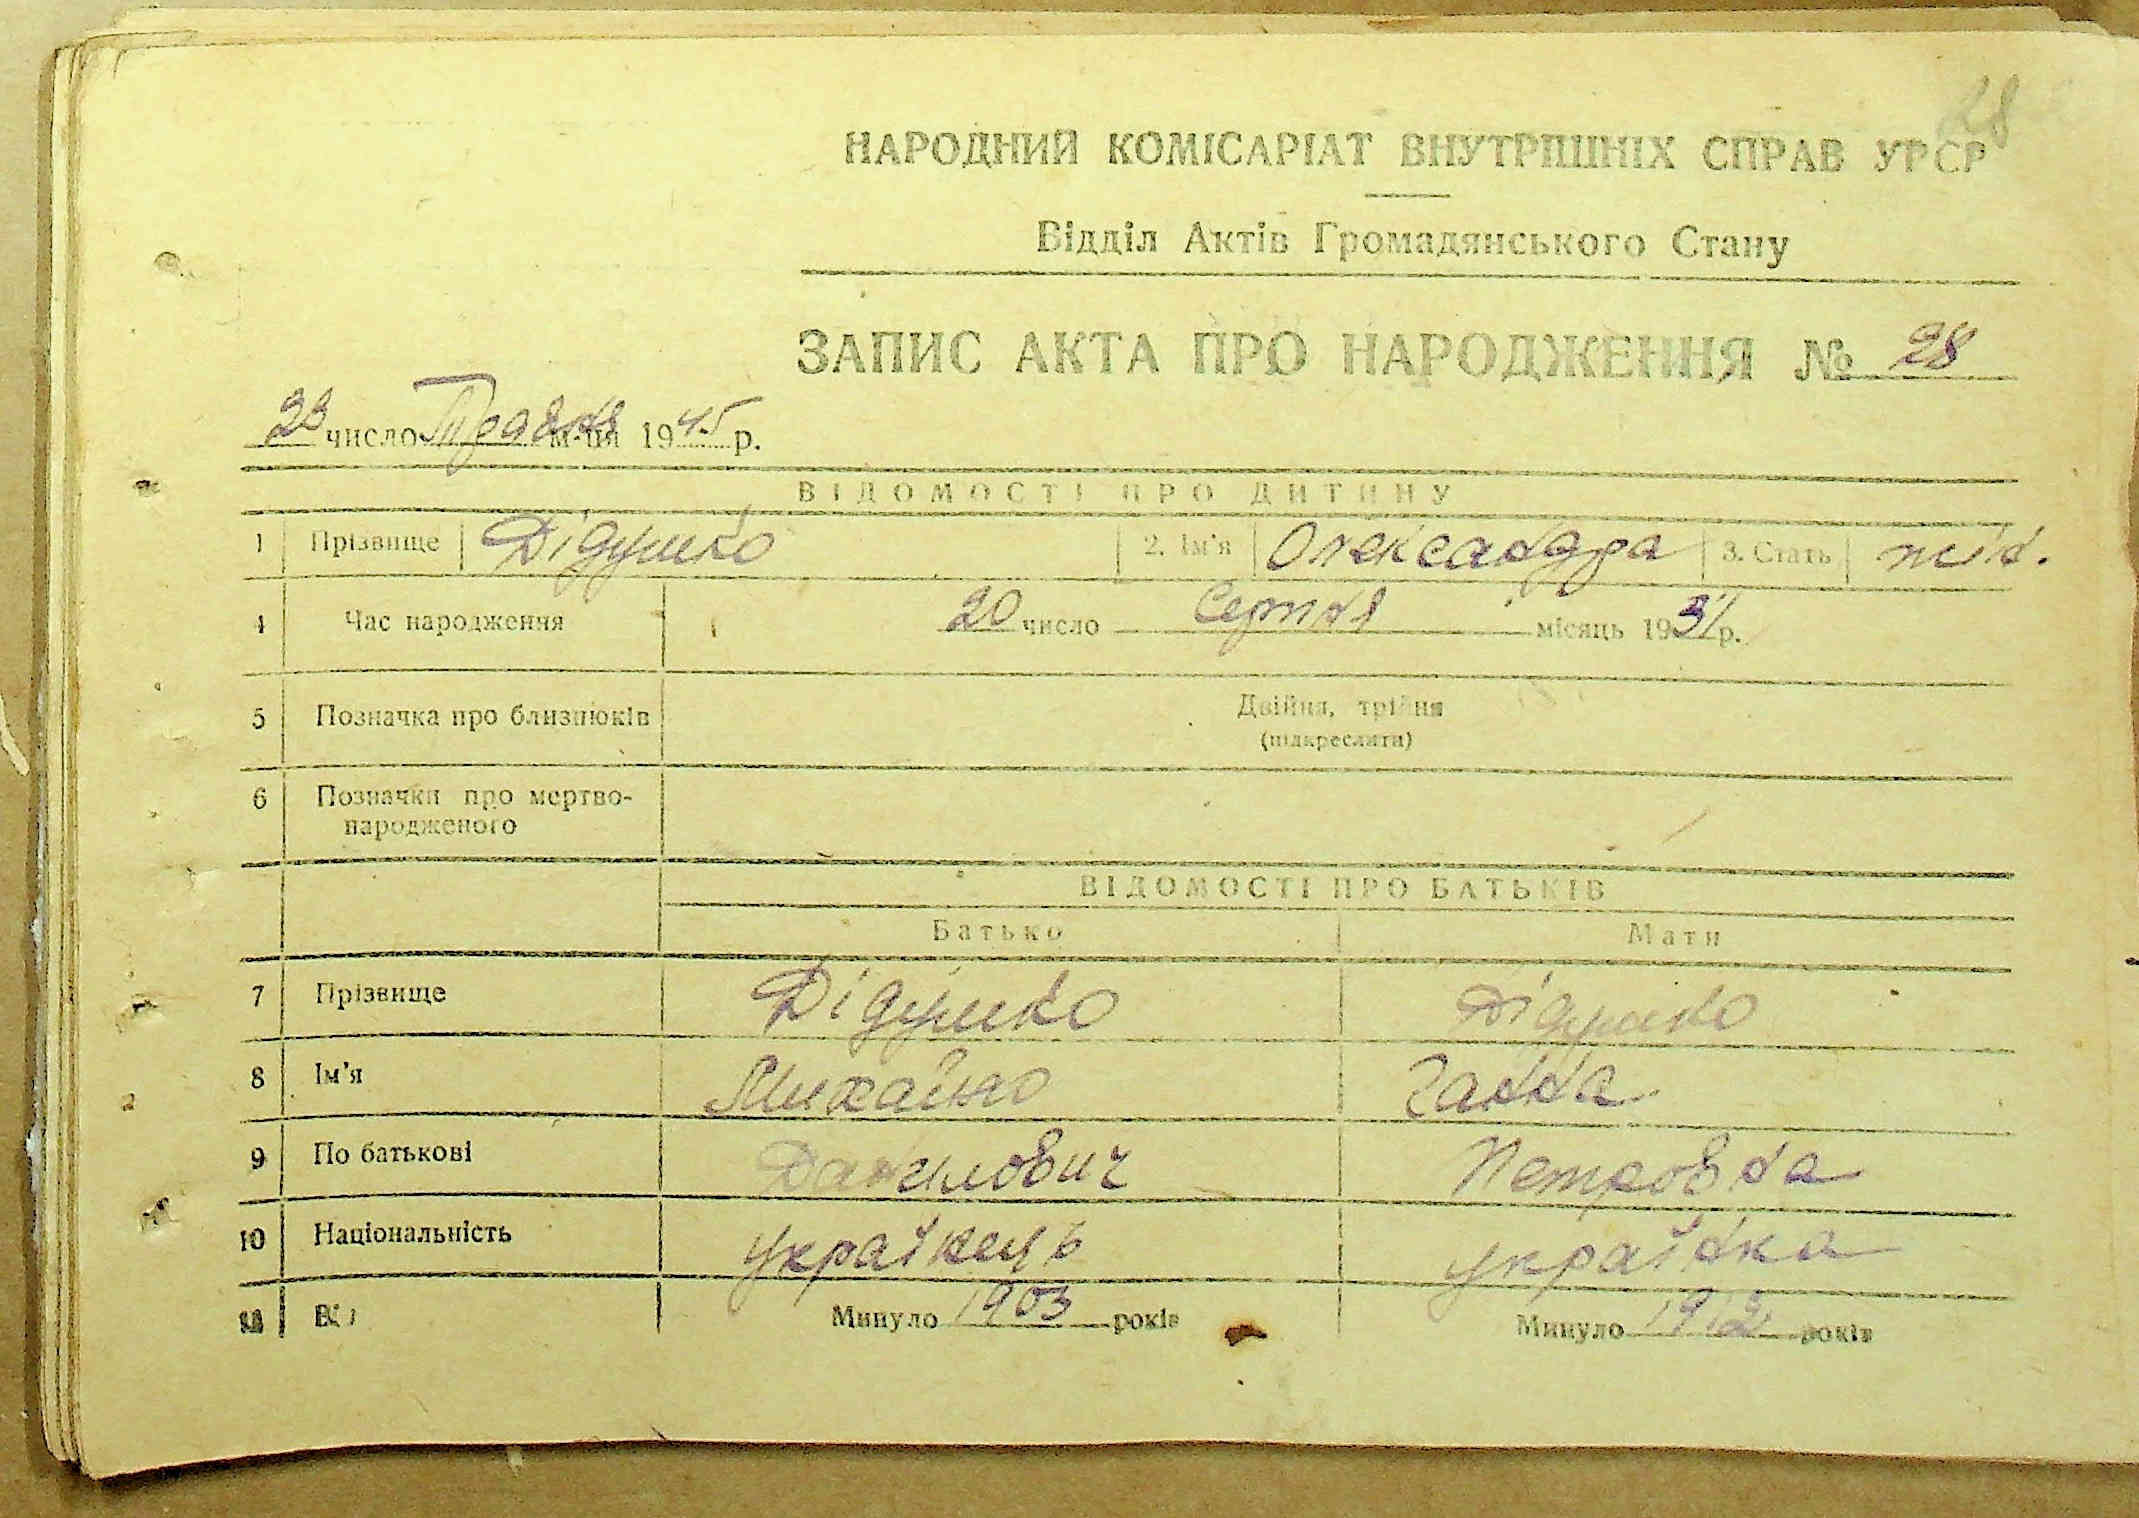 28
НАРОДНИЙ КОМІСАРІАТ ВНУТРІШНІХ СПРАВ УРСР
Відділ Актів Громадянського Стану
ЗАПИС АКТА ПРО НАРОДЖЕННЯ № 28
23 число Травня м-ця 1945 р.
ВІДОМОСТІ ПРО ДИТИНУ
1 Прізвище Дідушко 2. Ім'я Олександра 3. Стать жін.
4 Час народження 20 число Серпня місяць 1931 р.
5 Позначка про близнюків Двійня, трійня
(підкреслити)
6 Позначки про мертво-
народженого
ВІДОМОСТІ ПРО БАТЬКІВ
Батько Мати
7 Прізвище Дідушко Дідушко
8 Ім'я Михайло Ганна
9 По батькові Данилович Петровна
10 Національність українець українка
11 Вік Минуло 1903 років Минуло 1912 років